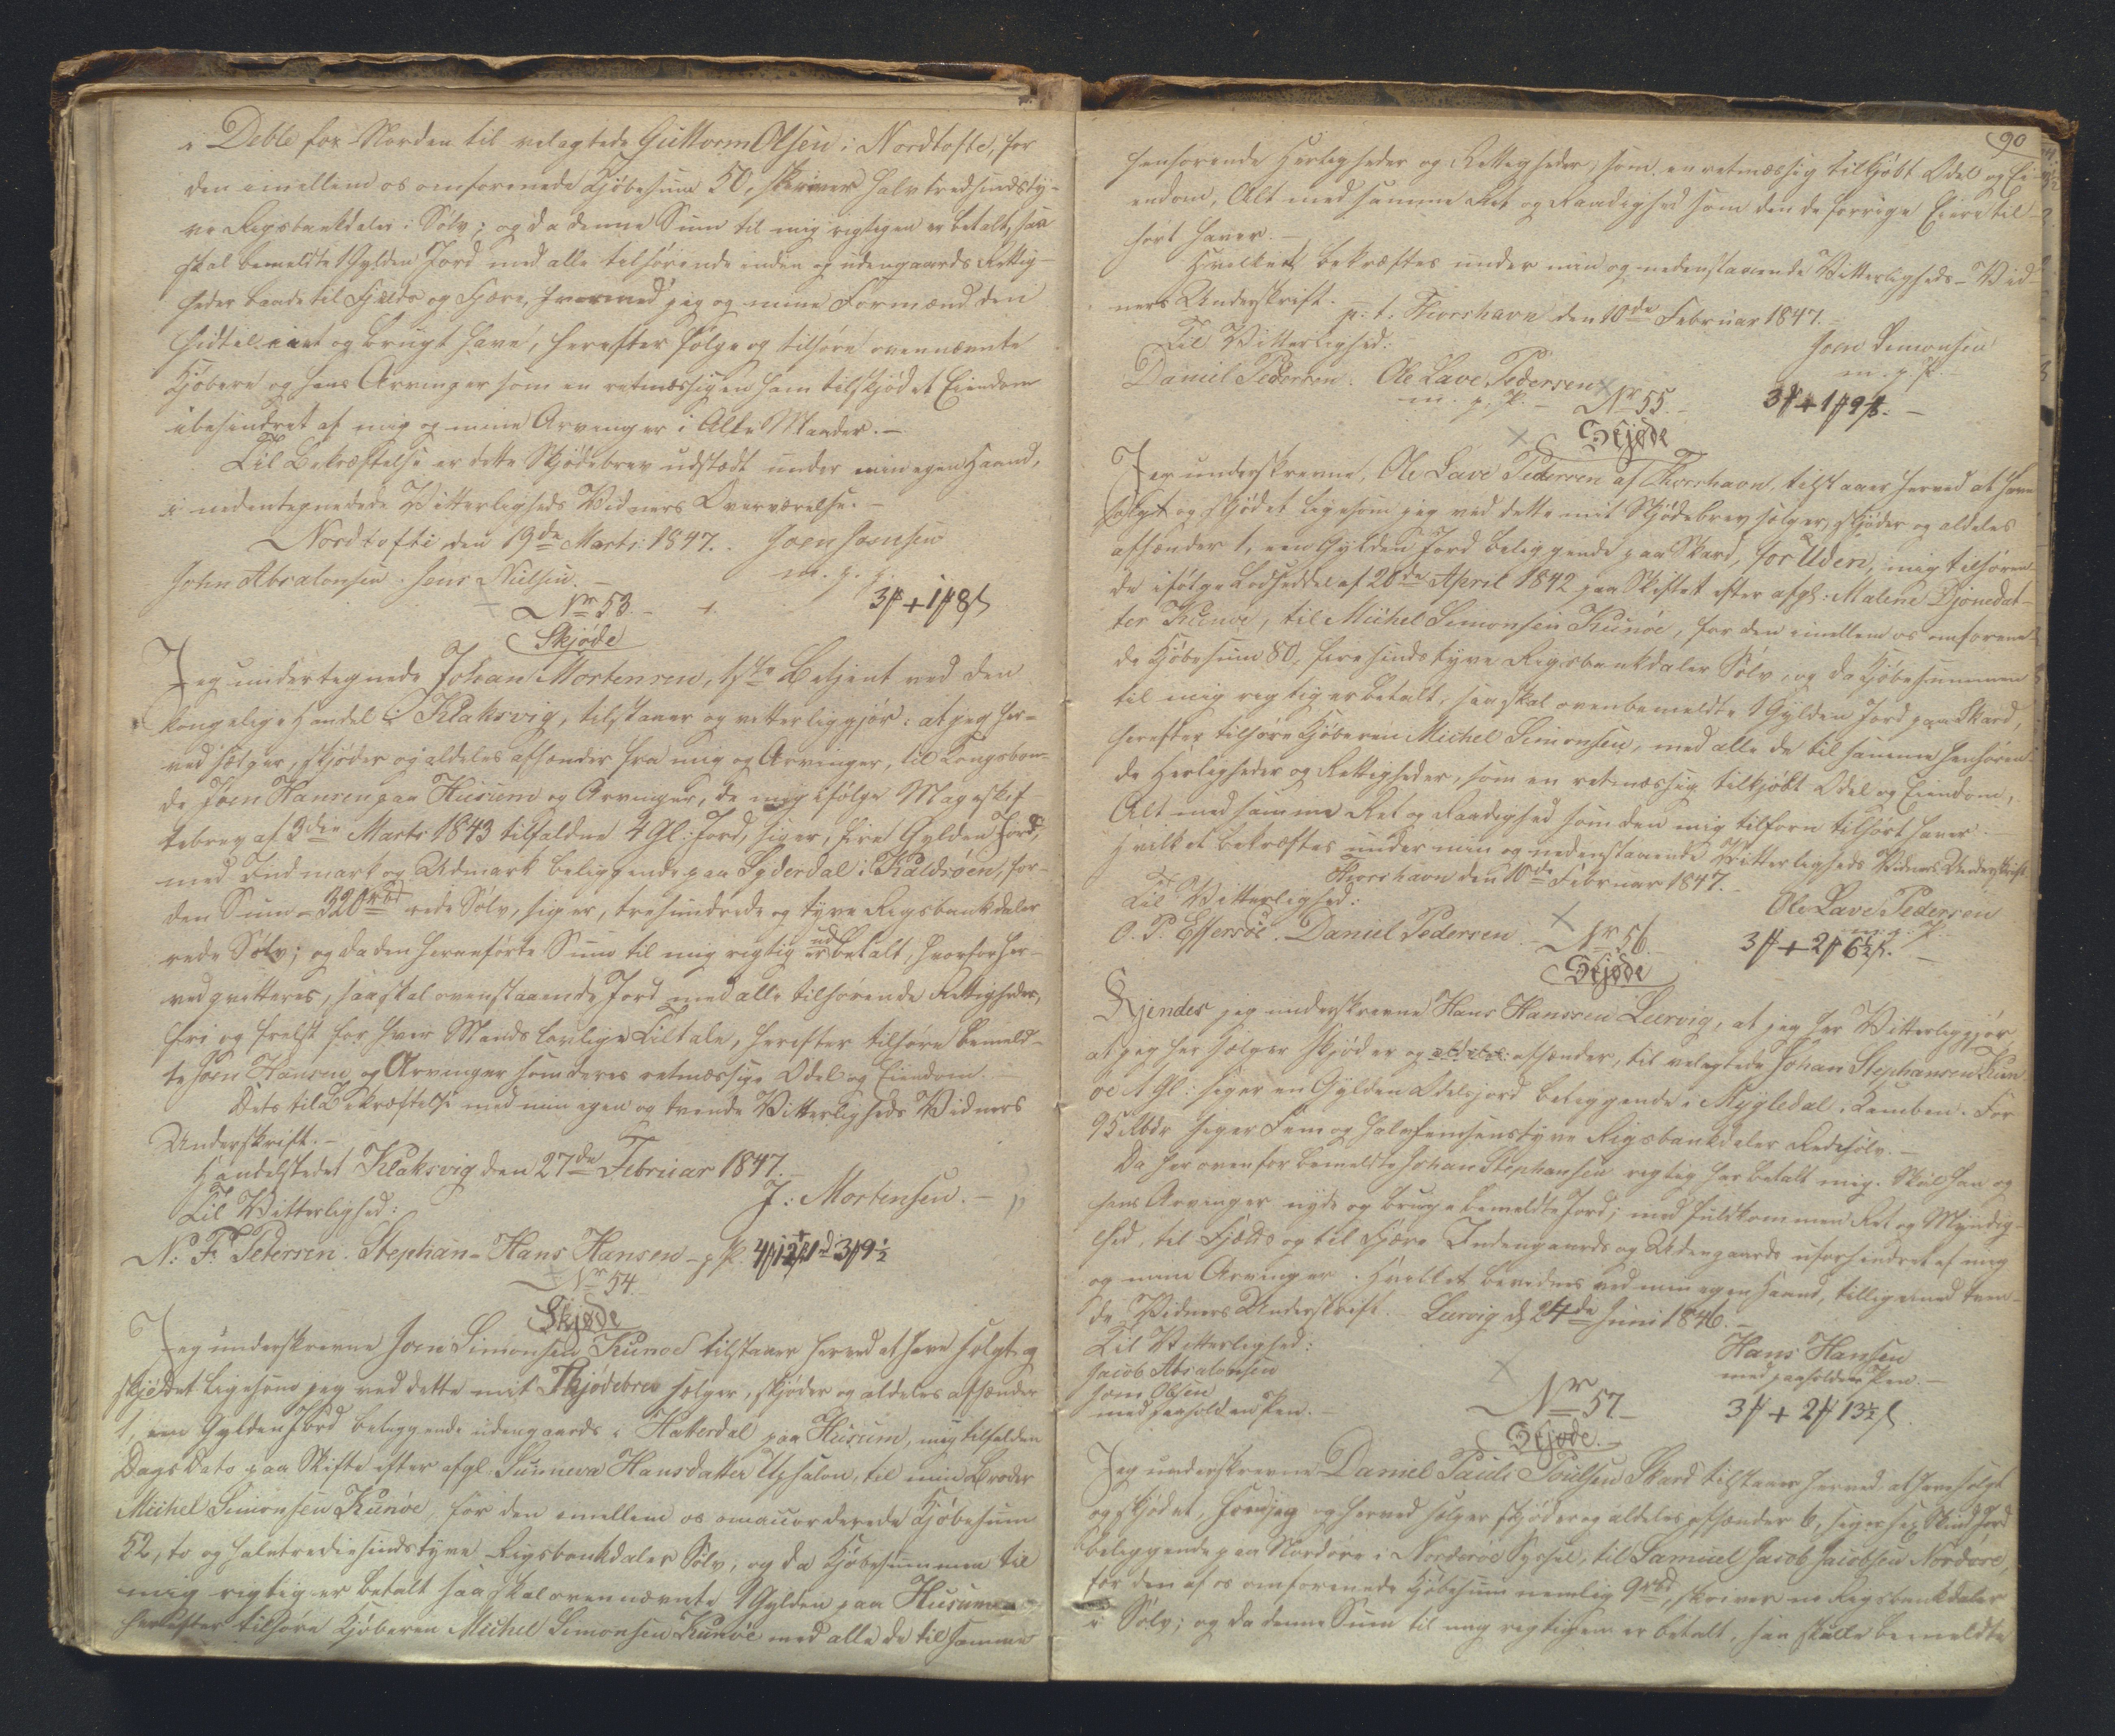 i Deble for Norden til velagtede Guttorm Olsen i Nordtofte, for
den imellem os omforenede Kjøbesum 50, skriver halvtredsindsty-
ve Rigsbankdaler i Sølv; og da denne Sum til mig rigtigen er betalt, saa
skal bemeldte 1 Gylden Jord med alle tilhørende inden og udengaards Rettig-
heder baade til Fjelds og Fjære, hvormed jeg og mine Formænd den
hidtil eiet og brugt have, herefter følge og tilhøre ovennævnte
Kjøbere og hans Arvinger som en retmæssigen ham tilskjødet Eiendom
ubehindret af mig og mine Arvinger i Alle Maader.-
Til Bekræftelse er dette Skjødebrev udstædt under min egen Haand,
i nedentegnede Vitterligheds Vidners Overværelse.-
Nordtofte den 19de Marts 1847. Joen Joensen
John Absalonsen. Jens Nielsen.- m. p. p.
Nr 53.- 3# + 1# 8ß
Skjøde
Jeg undertegnede Johan Mortensen, 1ste Betjent ved den
kongelige Handel i Klaksvig, tilstaaer og vitterliggjør: at jeg her-
ved sælger, skjøder og aldeles afhænder fra mig og Arvinger, til Kongsbon-
de Joen Hansen paa Husum og Arvinger, de mig ifølge Mageskif-
tebrev af 3die Marts 1843 tilfaldne 4 Gl: Jord, siger, fire Gylden Jord,
med Indmark og Udmark beliggende paa Syderdal i Kaldsøen, for
den Sum - 320 rbd rede Sølv, siger, trehundrede og tyve Rigsbankdaler
rede Sølv; og da den heranførte Sum til mig rigtig er udbetalt, hvorfor her-
ved qvitteres, saa skal ovenstaaende Jord med alle tilhørende Rettigheder,
fri og frelst for hver Mands lovlige Tiltale, herefter tilhøre bemeld-
te Joen Hansen og Arvinger som deres retmæssige Odel og Eiendom.-
Dets til Bekræftelse med min egen og tvende Vitterligheds Vidners
Underskrift.-
Handelstedet Klaksvig den 27de Februar 1847.-
Til Vitterlighed: J: Mortensen.-
N: F. Petersen. Stephan- Hans Hansen - p. P.
Nr 54.
Skjøde
Jeg underskrevne Joen Simonsen Kunoe tilstaaer herved at have solgt og
skjødet ligesom jeg ved dette mit Skjødebrev sælger, skjøder og aldeles afhænder
1, een Gylden Jord beliggende udengaards i Haterdal paa Husum, mig tilfalden
Dags Dato paa Skifte efter afgl. Sunneva Hansdatter Upsalon, til min Broder
Michel Simonsen Kunøe for den imellem os omaccorderede Kjøbesum
52, to og halvtrediesindstyve Rigsbankdaler Sølv, og da Kjøbesummen til
mig rigtig er betalt saa skal ovennævnte 1 Gylden paa Husum
herefter tilhøre Kjøberen Michel Simonsen Kunøe med alle de til samme
90
henhørende Herligheder og Rettigheder, som en retmæssig tilkjøbt Odel og Ei-
endom, Alt med samme Ret og Raadighed som den de forrige Eiere til-
hørt haver.-
Hvilket bekræftes under min og nedenstaaende Vitterligheds-Vid-
ners Underskrift.
p. t. Thorshavn den 10de Februar 1847.-
Til Vitterlighed: Joen Simonsen
Daniel Pedersen. Ole Lave Pedersen m. p. P.-
m. p. P.- Nr 55.- 3# + 1# 9ß.-
Skjøde
Jeg underskrevne, Ole Lave Pedersen af Thorshavn, tilstaaer herved at have
solgt og skjødet ligesom jeg ved dette mit Skjødebrev sælger, skjøder og aldeles
afhænder 1, een Gylden Jord beliggende paa Skard, for Uden, mig tilhøren-
de ifølge Lodseddel af 20de April 1842 paa Skiftet efter afgl: Malene Djonedat-
ter Kunøe, til Michel Simonsen Kunøe, for den imellem os omforene-
de Kjøbesum 80, firesindstyve Rigsbankdaler Sølv, og da Kjøbesummen
til mig rigtig er betalt, saa skal ovenbemeldte 1 Gylden Jord paa Skard,
herefter tilhøre Kjøberen Michel Simonsen, med alle de til samme henhøren-
de Herligheder og Rettigheder, som en retmæssig tilkjøbt Odel og Eiendom,
Alt med samme Ret og Raadighed som den mig tilforn tilhørt haver.
Hvilket bekræftes under min og nedenstaaende Vitterligheds Vidners Underskrift
Thorshavn den 10de Februar 1847.-
Til Vitterlighed: Ole Lave Pedersen
O. P. Effersöe. Daniel Pedersen.- m. p. P.
Nr 56. 3# + 2# 6½ß.-
Skjøde
Kjendes jeg underskrevne Hans Hanssen Lervig, at jeg her Vitterliggjør
at jeg her sælger skjøder og aldeles afhænder, til velagtede Johan Stephansen Kun-
öe 1 Gl: siger en Gylden Odelsjord beliggende i Mygledal, Kamben. For
95 Rbdr siger Fem og halvfemsenstyve Rigsbankdaler Redesølv.-
Da her ovenfor bemeldte Johan Stephansen rigtig har betalt mig. Skal han og
hans Arvinger nyde og bruge bemeldte Jord, med fuldkommen Ret og Myndig-
hed, til Fjelds og til Fjære Indengaards og Udengaards uforhindret af mig
og mine Arvinger. Hvilket bevidnes ved min egen Haand, tilligemed tven-
de Vidners Underskrift. Lervig d. 24de Juni 1846.-
Til Vitterlighed: Hans Hansen
Jacob Absalonsen med paaholden Pen.-
Joen Olsen
med paaholden Pen.- Nr 57.- 3# + 2# 13½ß.
Skjøde.-
Jeg underskrevne Daniel Pauli Poulsen Skard tilstaaer herved at have solgt
og skjødet, som jeg og herved sælger skjøder og aldeles afhænder 6, siger sex Skind Jord
beliggende paa Nordöre i Norderøe Syssel, til Samuel Jacob Jacobsen Nordöre,
for den af os omforenede Kjøbesum nemlig 9 rbd, skriver ni Rigsbankdaler
i Sølv; og da denne Sum til mig rigtigen er betalt, saa skulle bemeldte